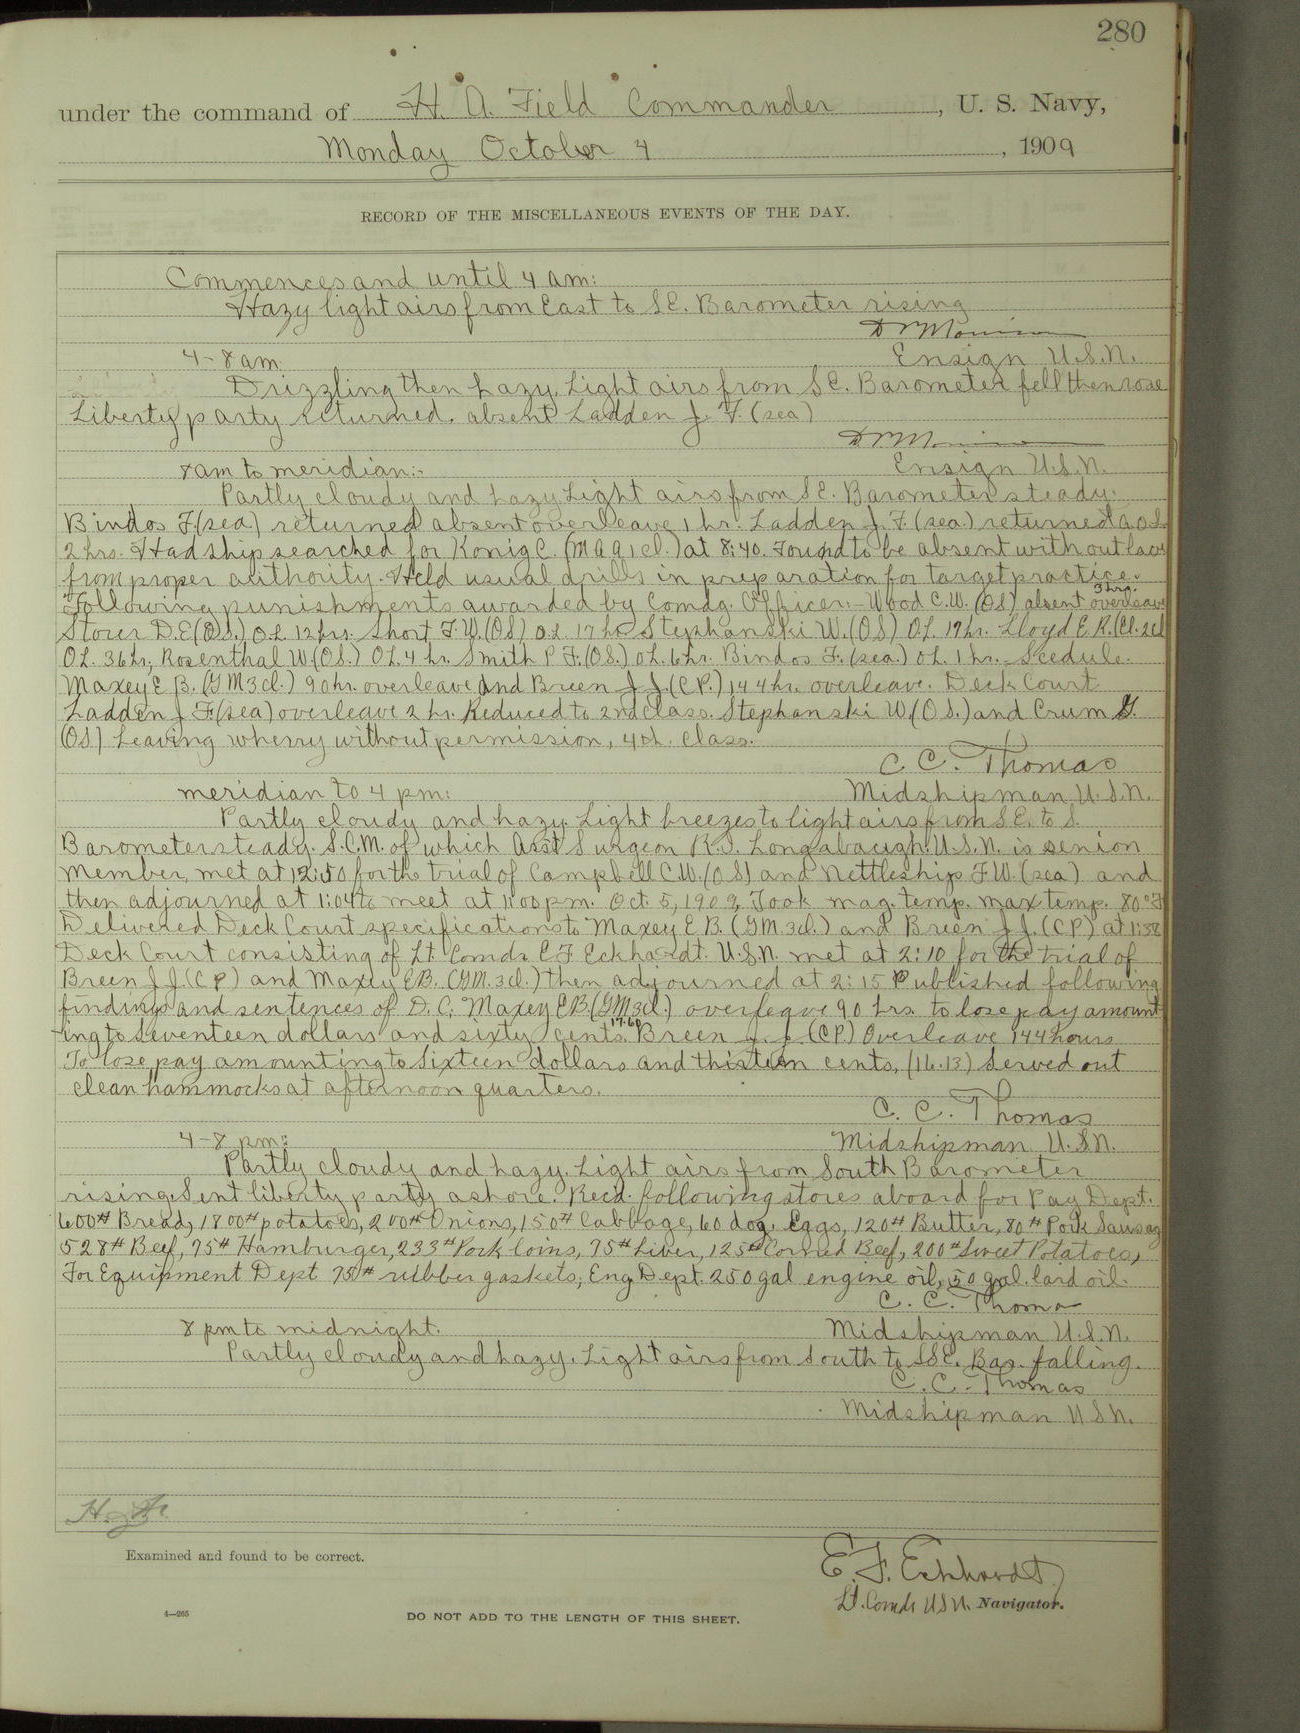 280
under the command of H. A. Field Commander, U. S. Navy,
Monday October 4, 1909
RECORD OF THE MISCELLANEOUS EVENTS OF THE DAY.
Commences and until 4 am:
Hazy light airs from East to SE. Barometer rising
4-8 am:
Ensign U.S.N.
Drizzling then hazy. Light airs from SE. Barometer fell then rose
Liberty party returned. absent Ladden J. F. (sea)
8 am to meridian:-
Ensign U.S.N.
Partly cloudy and hazy. Light airs from SE. Barometer steady.
Bindos F. (sea) returned absent overleave 1 hr. Ladden J. F. (sea.) returned a.o.l.
2 hrs. Had ship searched for Konig C. (M a a 1 cl.) at 8:40. Found to be absent without leave
from proper authority. Held usual drills in preparation for target practice.
Following punishments awarded by Comdg. Officer:- Wood C.W. (OS) absent overleave 3 hrs.
D.E (O.S.) O.L. 12 hrs. Short F.W. (OS) O.L. 17 hr. Stephanski W. (OS) OL. 17 hr. Lloyd E. R. (El. 2cl
OL. 36 hr, Rosenthal W. (OS.) OL. 4 hr. Smith P. F. (OS.) OL. 6 hr. Bindos F. (sea.) OL. 1 hr. Scedule.
Maxey E B. (GM 3cl.) 90 hr. overleave and Breen J J. (C.P.) 144 hr. overleave. Deck Court
Ladden J F. (sea) overleave 2 hr. Reduced to 2nd class. Stephanski W (O S.) and Crum G.
(OS) Leaving wherry without permission, 4th. class.
C. C. Thomas
meridian to 4 pm:
Midshipman U.S.N.
Partly cloudy and hazy. Light breezes to light airs from SE. to S.
Barometer steady. S.C.M. of which Asst Surgeon R. I. Longabaugh U.S.N. is senior
member, met at 12:50 for the trial of Campbell C.W. (O S) and Nettleship F.W. (sea) and
then adjourned at 1:04 to meet at 1:00 pm. Oct. 5, 1909. Took mag. temp. max temp. 80° F
Delivered Deck Court specifications to Maxey E B. (GM. 3cl.) and Breen J J. (C P) at 1:38
Deck Court consisting of Lt. Comdr E F. Eckhardt. U.S.N. met at 2:10 for the trial of
Breen J J. (C P) and Maxey E B. (GM. 3cl.) then adjourned at 2:15 Published following
findings and sentences of D. C; Maxey E B. (GM 3cl.) overleave 90 hrs. to lose pay amount-
ing to Seventeen dollars and sixty cents. 17.60 Breen J. J. (CP.) Overleave 144 hours
To lose pay amounting to Sixteen dollars and thirteen cents, (16.13) Served out
clean hammocks at afternoon quarters.
C. C. Thomas
4-8 pm:
Midshipman U.S.N.
Partly cloudy and hazy. Light airs from South Barometer
rising. Sent liberty party ashore. Rec'd. following stores aboard for Pay Dept.
600# Bread, 1800# potatoes, 200# Onions, 150# Cabbage, 60 doz. Eggs, 120# Butter, 80# Pork Sausag
528# Beef, 75# Hamburger, 233# Pork loins, 75# Liver, 125# Corned Beef, 200# Sweet Potatoes,
For Equipment Dept 75# rubber gaskets; Eng. Dept. 250 gal engine oil, 50 gal. lard oil.
C. C. Thomas
8 pm to midnight.
Midshipman U.S.N.
Partly cloudy and hazy. Light airs from South to SSE. Bar. falling.
C. C. Thomas
Midshipman U S N.
Examined and found to be correct.
E. F. Eckhardt
Lt. Comdr U S N. Navigator.
4—265
DO NOT ADD TO THE LENGTH OF THIS SHEET.